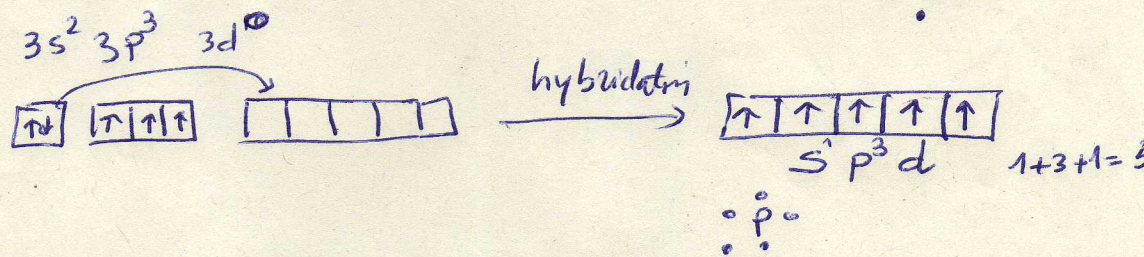 3s² 3p³ 3d⁰
hybzidatni
↑↓ ↑ ↑ ↑
↑ ↑ ↑ ↑ ↑
s¹ p³ d 1+3+1=5
P